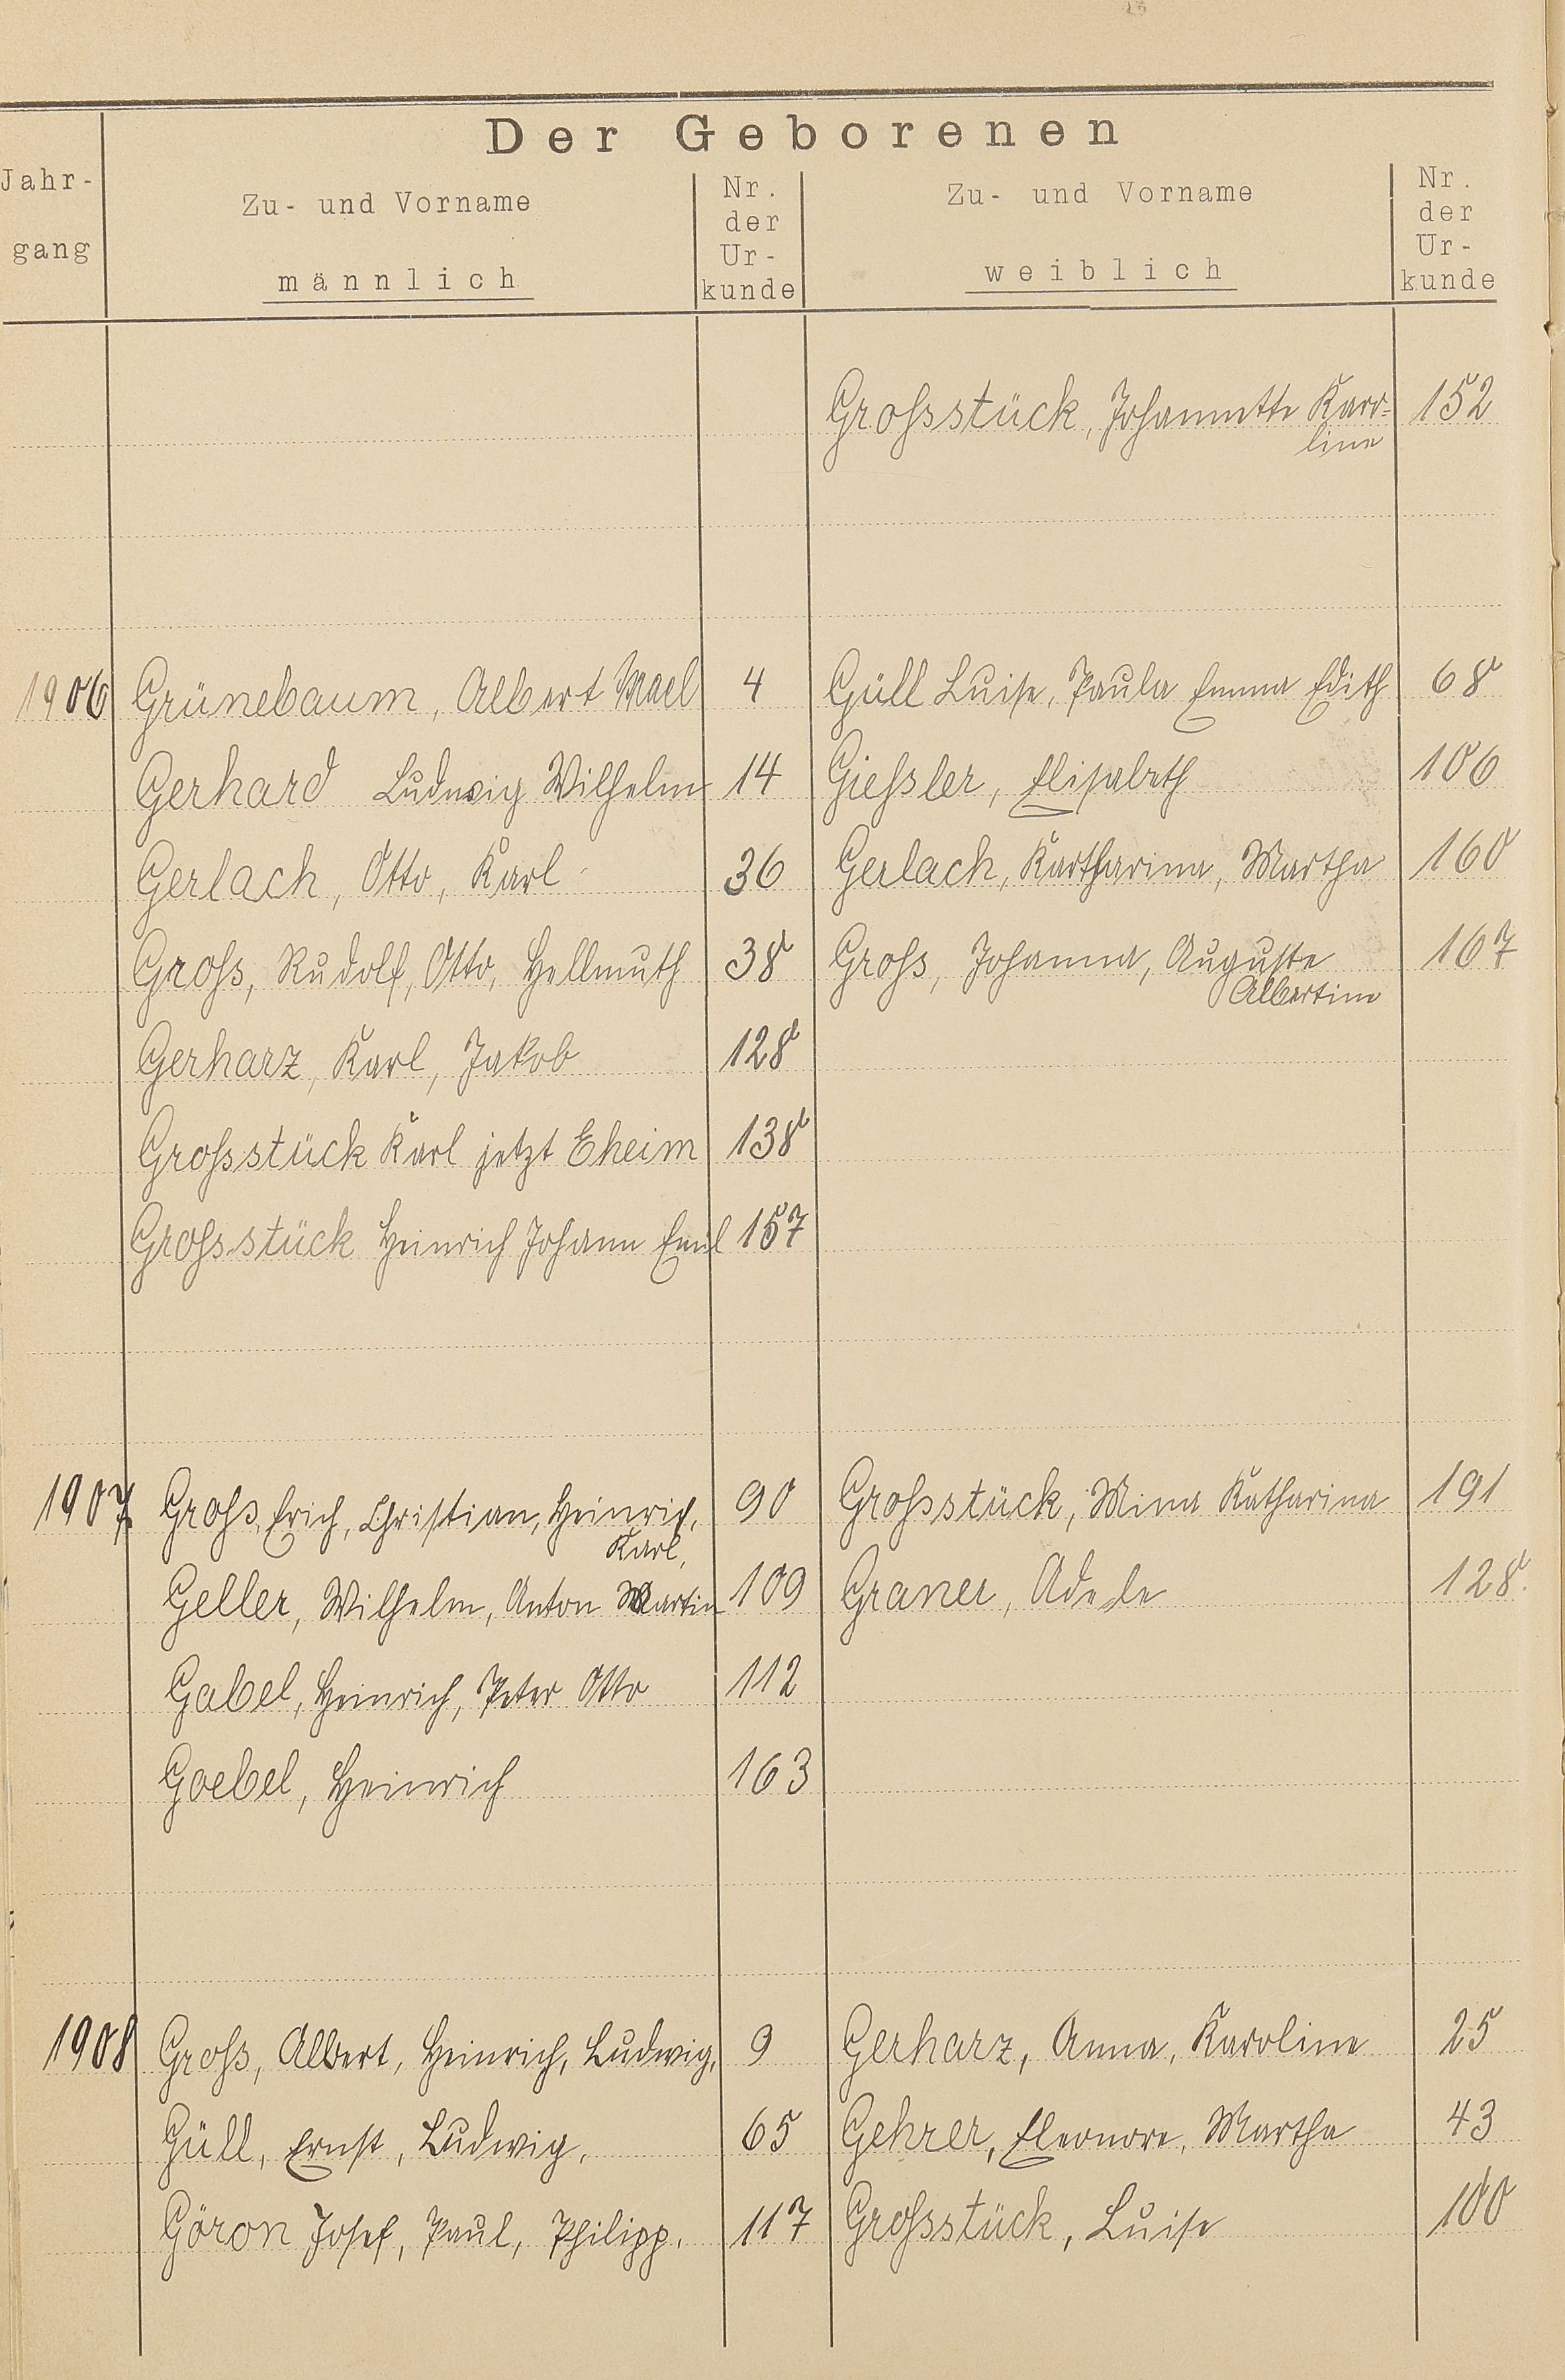 Der Geborenen
Jahr-
gang
Zu- und Vorname
männlich
Nr.
der
Ur-
kunde
Zu- und Vorname
weiblich
Nr.
der
Ur-
kunde
Großstück, Johannette Karo= 152
line
1906 Grünebaum, Albert Israel 4 Güll Luise, Paula Emma Edith 68
Gerhard Ludwig Wilhelm 14 Gießler, Elisabeth 106
Gerlach, Otto, Karl 36 Gerlach, Kartharina, Martha 160
Groß, Rudolf, Otto, Hellmuth 38 Groß, Johanna, Auguste 167
Albertine
Gerharz, Karl, Jakob 128
Großstück Karl jetzt Eheim 138
Großstück Heinrich Johann Emil 157
1907 Groß, Erich, Christian, Heinrich, 90 Großstück, Mina Katharina 191
Karl,
Geller, Wilhelm, Anton Martin 109 Graner, Adele 128.
Gabel, Heinrich, Peter Otto 112
Goebel, Heinrich 163
1908 Groß, Albert, Heinrich, Ludwig, 9 Gerharz, Anna, Karoline 25
Güll, Ernst, Ludwig, 65 Gehrer, Eleonore, Martha 43
Göron Josef, Paul, Philipp. 117 Großstück, Luise 100